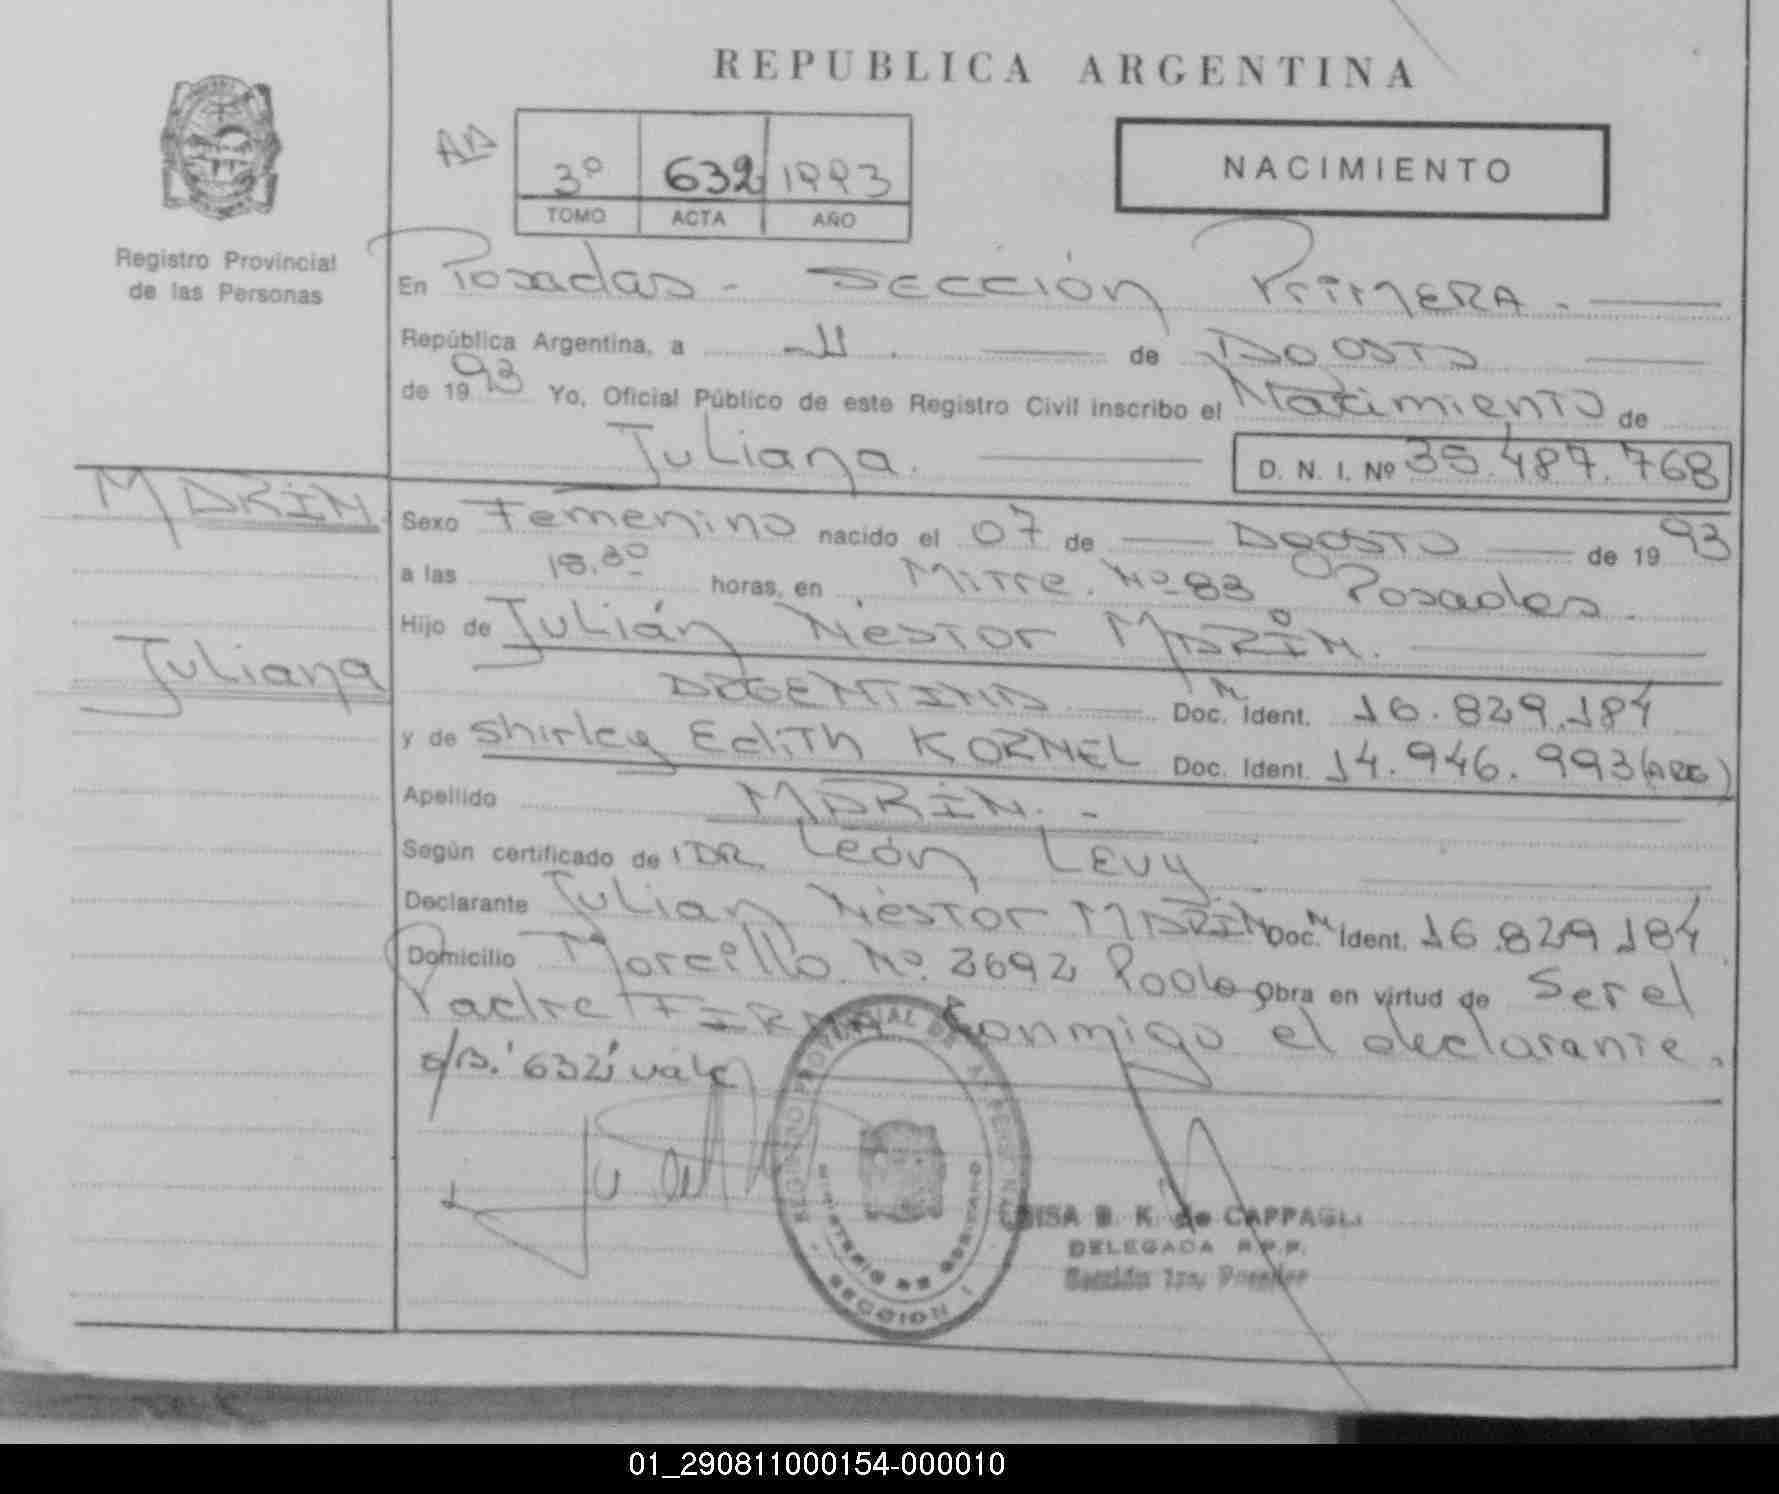 REPUBLICA ARGENTINA
Registro Provincial
de las Personas
3º 632 1993
TOMO ACTA AÑO
NACIMIENTO
En Posadas - Sección Primera.
República Argentina, a 11 de Agosto
de 1993 Yo, Oficial Público de este Registro Civil inscribo el Nacimiento de
Juliana. D. N. I. Nº 35.487.768
MARIN
Juliana
Sexo Femenino nacido el 07 de Agosto de 1993
a las 18.30 horas, en Mitre. Nº 83 Posadas.
Hijo de Julián Néstor MARIN.
ARGENTINO Doc. Ident. 16.829.184
y de Shirley Edith KORNEL Doc. Ident. 14.946.993 (ARG)
Apellido MARIN. -
Según certificado de DR León Levy
Declarante Julian Néstor MARIN Doc. Ident. 16.829.184
Domicilio Nº. 2692 Obra en virtud de Ser el
Padre FIRMA Conmigo el declarante.
s/B. '632' vale
REGISTRO PROVINCIAL DE LAS PERSONAS
MINISTERIO DE GOBIERNO
SECCION 1
B. K. de CAPPAGLI
DELEGADA R.P.P.
Sección 1ra, Posadas
01_290811000154-000010